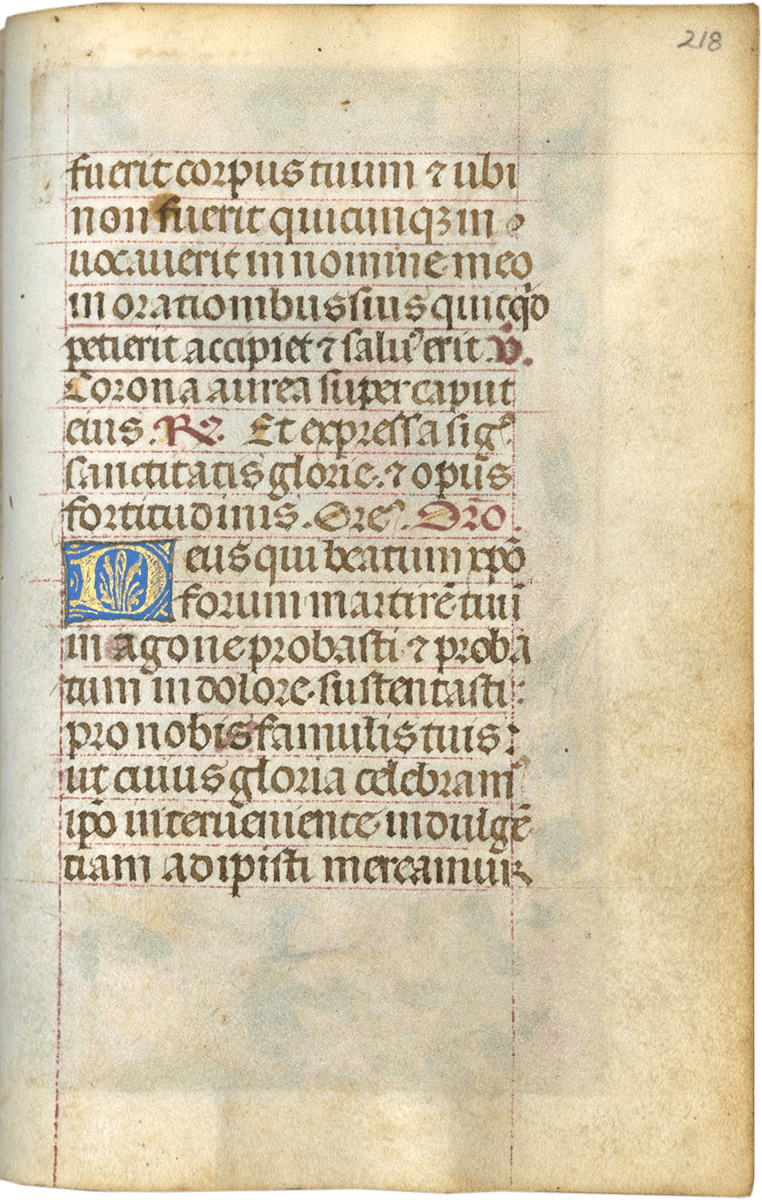 218
fuerit corpus tuum ⁊ ubi
non fuerit quicunqꝫ in
uocauerit in nomine meo
in orationibus suis quicq̄d
petierit accipiet ⁊ saluꝰ erit ℣.
Corona aurea super caput
eius. ℟. Et expressa sigꝰ
sanctitatis glorie. ⁊ opus
fortitudinis. Oreꝰ. Orō.
Deus qui beatum xpō
forum martirē tuū
in agone probasti ⁊ proba
tum in dolore sustentasti:
pro nobis famulis tuis:
ut cuius gloria celebramꝰ
ipō interueniente indulgē
tiam adipisti mereamur